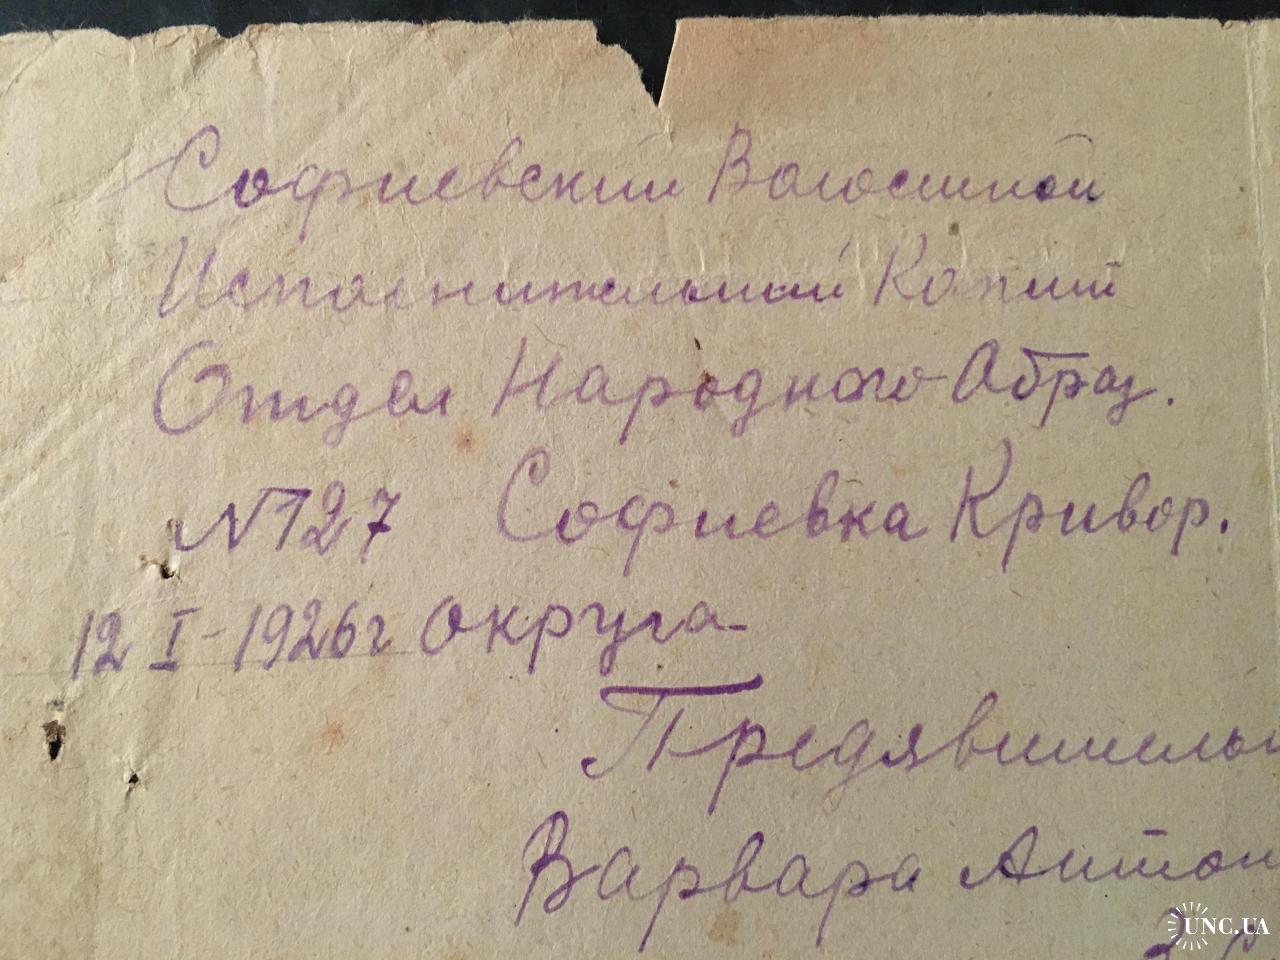 Софиевский Волосний
Исполнительний Комит
Отдел Народного Образ.
№127 Софиевка Кривор.
12 I-1926г Округа
Предявитель
Варвара Антон
UNC.UA